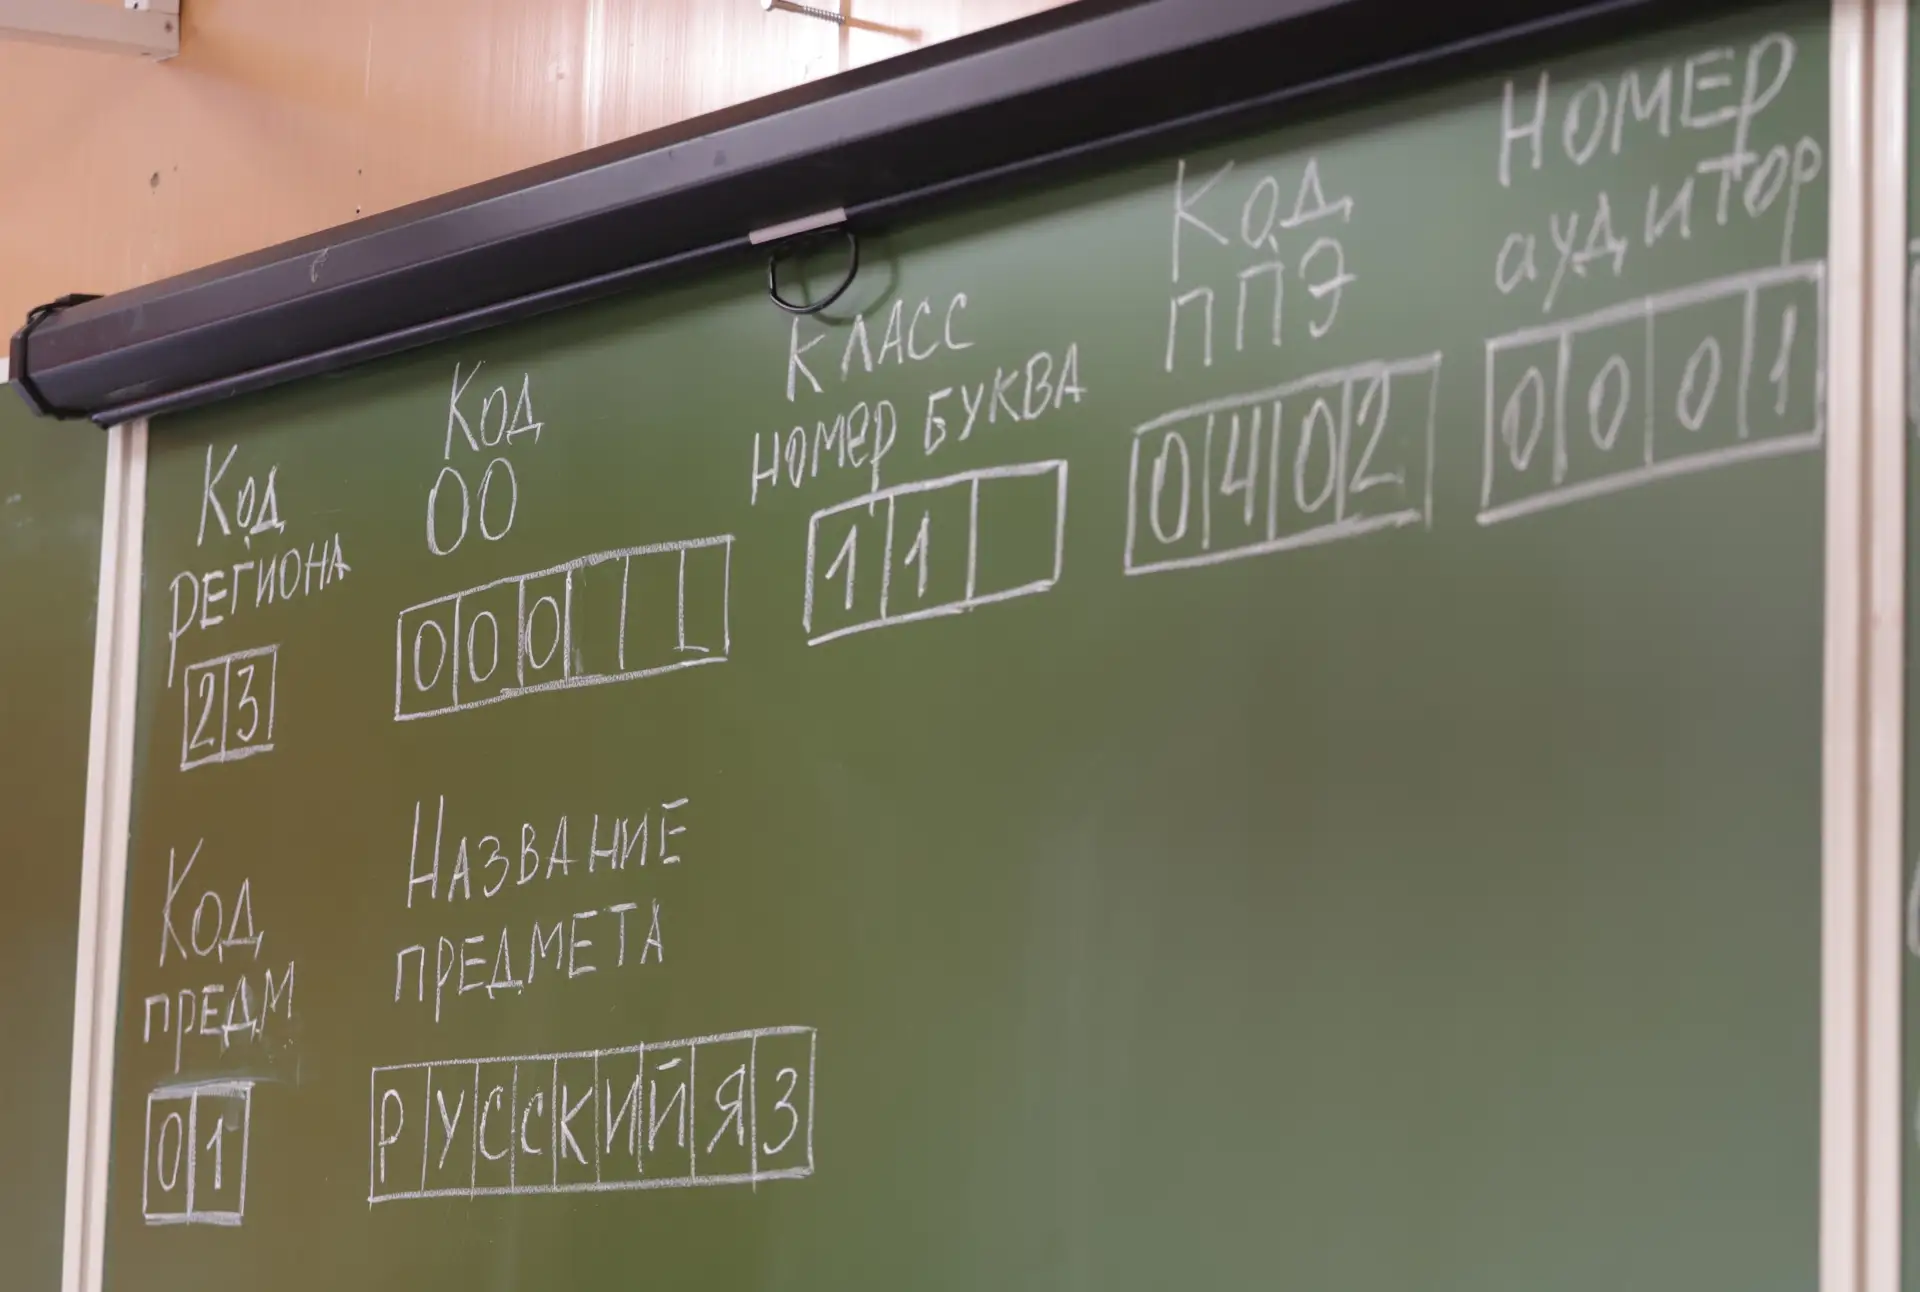 Код
региона
23
Код
ОО
000
Класс
номер буква
11
Код
ППЭ
0402
Номер
аудитор
0001
Код
предм
01
Название
предмета
РУССКИЙ ЯЗ